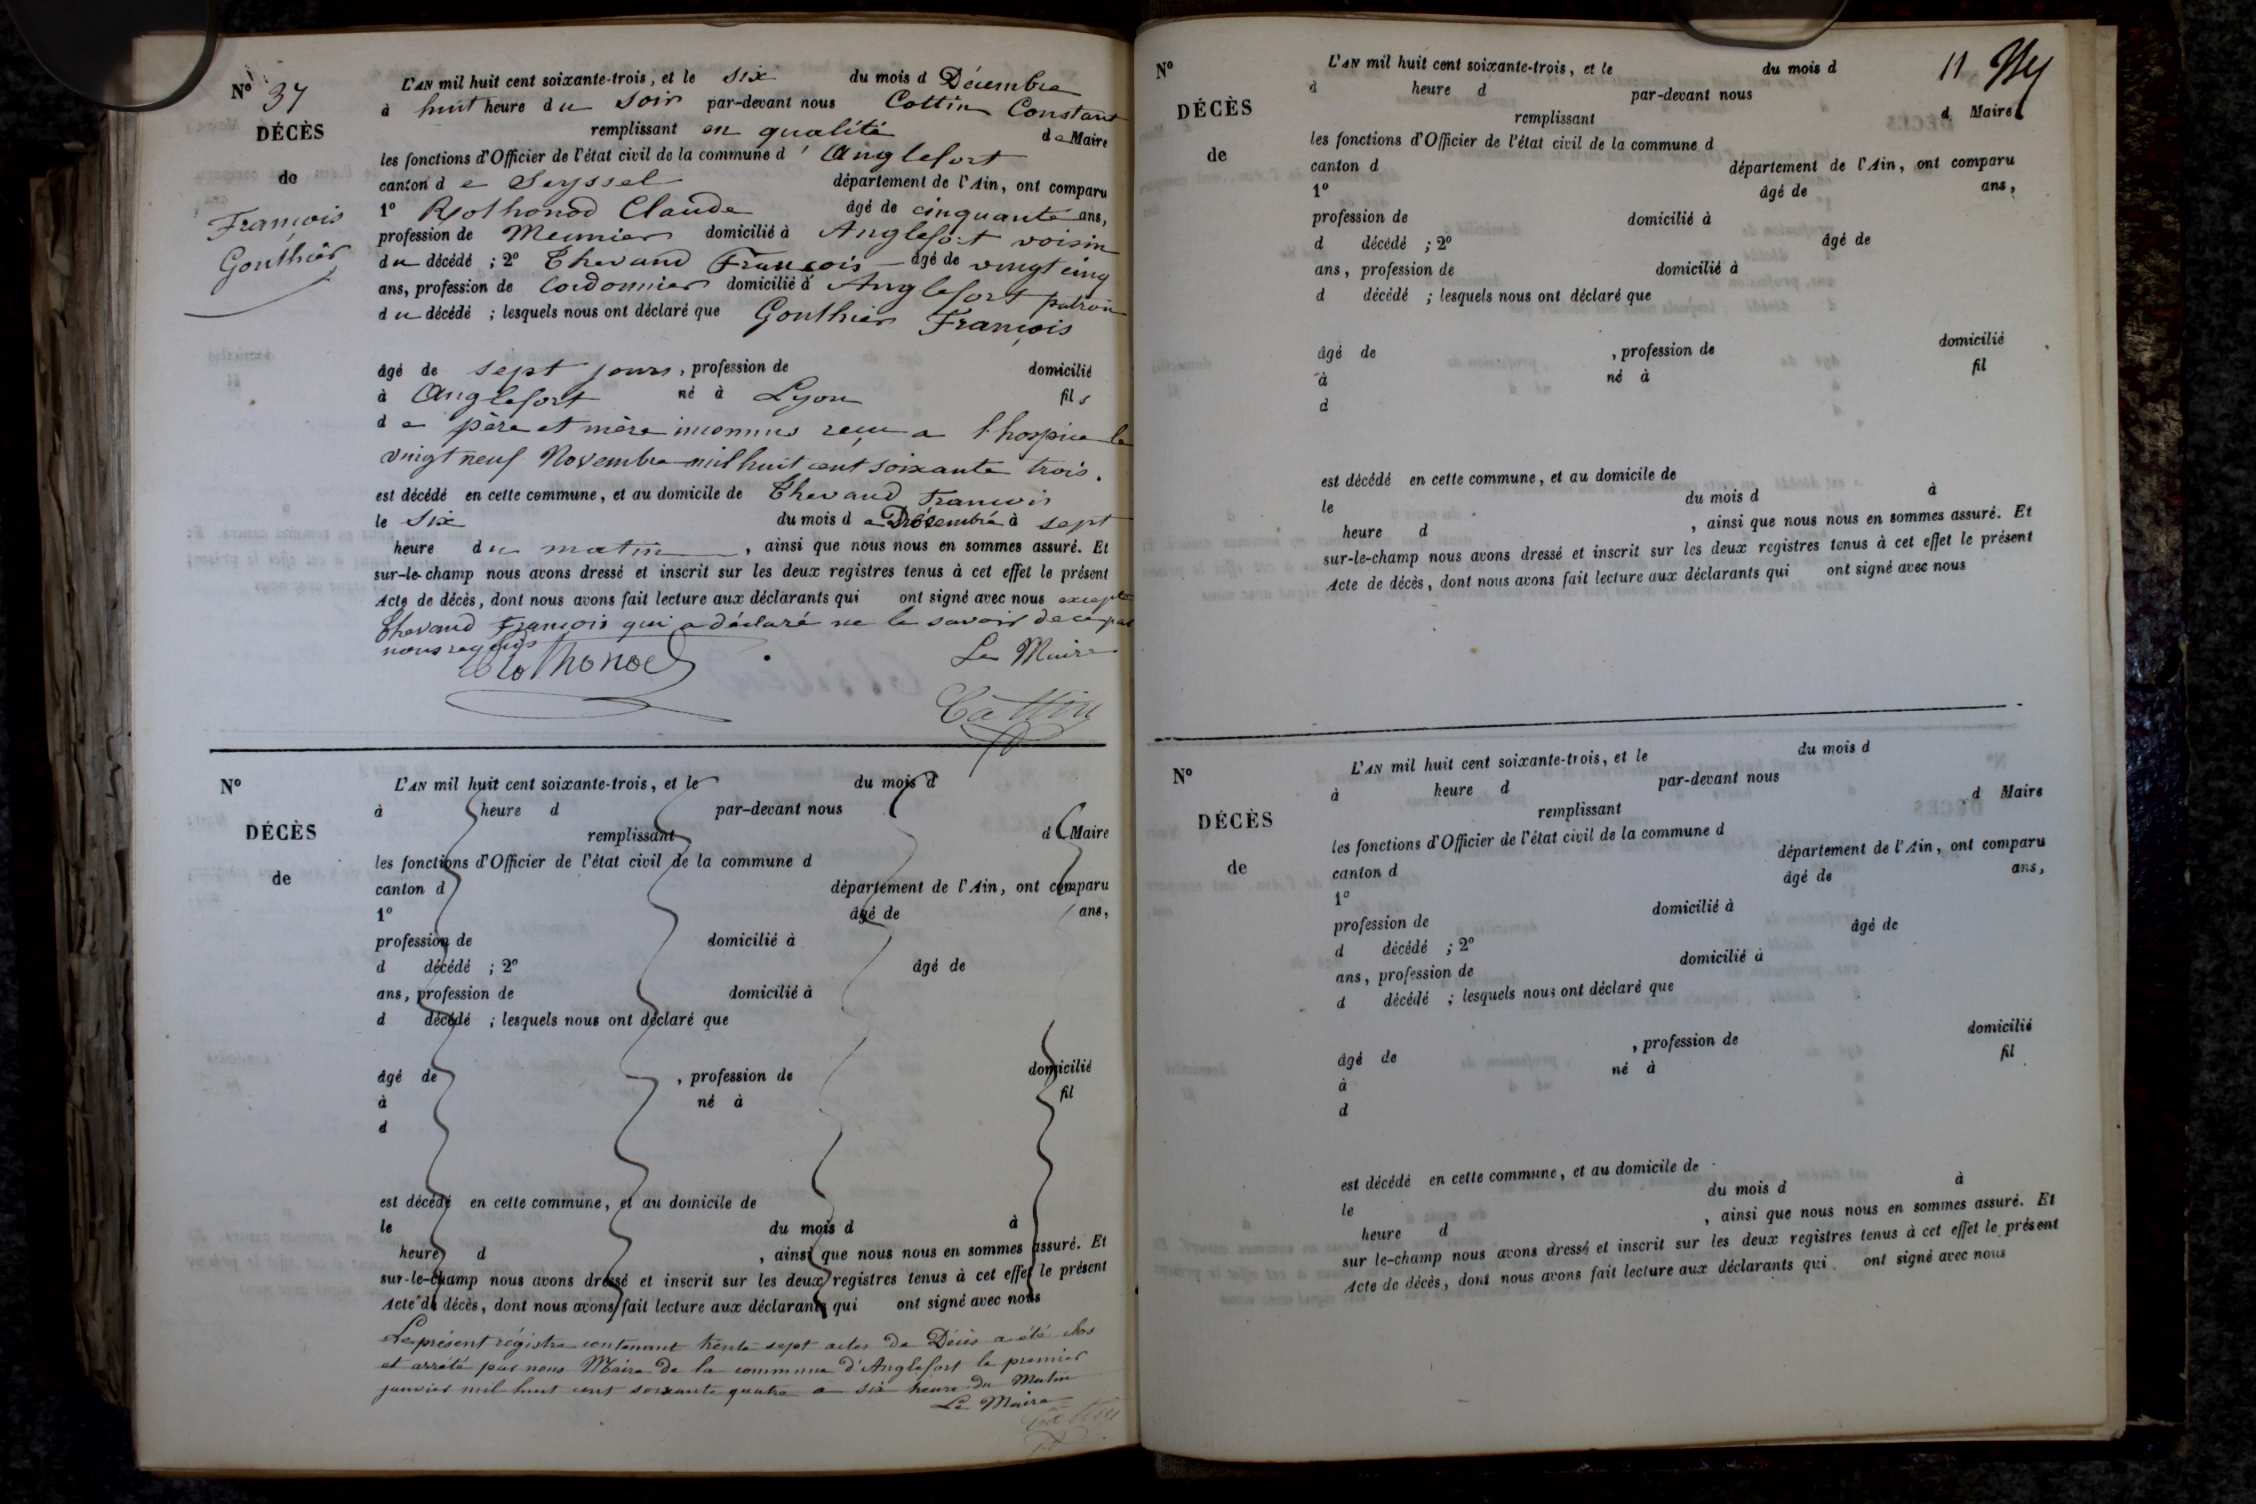 N° 37
DÉCÈS
de
François
Gonthier
L'AN mil huit cent soixante-trois, et le six du mois d Décembre
à huit heure du soir par-devant nous Cottin Constant
remplissant en qualité de Maire
les fonctions d'Officier de l'état civil de la commune d'Anglefort
canton de Seyssel département de l'Ain, ont comparu
1° Rothonod Claude âgé de cinquante ans,
profession de Meunier domicilié à Anglefort voisin
du décédé ; 2° Thevand François âgé de vingt cinq
ans, profession de Cordonnier domicilié à Anglefort patron
du décédé ; lesquels nous ont déclaré que Gonthier François
âgé de sept jours, profession de domicilié
à Anglefort né à Lyon fils
de père et mère inconnus reçu a l'hospice le
vingt neuf Novembre mil huit cent soixante trois.
est décédé en cette commune, et au domicile de Thevand François
le Six du mois de Décembre à sept
heure du matin, ainsi que nous nous en sommes assuré. Et
sur-le-champ nous avons dressé et inscrit sur les deux registres tenus à cet effet le présent
Acte de décès, dont nous avons fait lecture aux déclarants qui ont signé avec nous excepté
Thevand François qui a déclaré ne le savoir de ce par
nous requis
Rothonod
Le Maire
Cottin
N°
DÉCÈS
de
L'AN mil huit cent soixante-trois, et le du mois d
à heure d par-devant nous
remplissant d Maire
les fonctions d'Officier de l'état civil de la commune d
canton d département de l'Ain, ont comparu
1° âgé de ans,
profession de domicilié à
d décédé ; 2° âgé de
ans, profession de domicilié à
d décédé ; lesquels nous ont déclaré que
âgé de , profession de domicilié
à né à fil
d
est décédé en cette commune, et au domicile de
le du mois d à
heure d , ainsi que nous nous en sommes assuré. Et
sur-le-champ nous avons dressé et inscrit sur les deux registres tenus à cet effet le présent
Acte de décès, dont nous avons fait lecture aux déclarants qui ont signé avec nous
Le présent régistre contenant trente sept actes de Décès a été clos
et arrêté par nous Maire de la commune d'Anglefort le premier
janvier mil huit cent soixante quatre a six heure du Matin
Le Maire
Cottin
11
N°
DÉCÈS
de
L'AN mil huit cent soixante-trois, et le du mois d
d heure d par-devant nous
remplissant d Maire
les fonctions d'Officier de l'état civil de la commune d
canton d département de l'Ain, ont comparu
1° âgé de ans,
profession de domicilié à
d décédé ; 2° âgé de
ans, profession de domicilié à
d décédé ; lesquels nous ont déclaré que
âgé de , profession de domicilié
à né à fil
d
est décédé en cette commune, et au domicile de
le du mois d à
heure d , ainsi que nous nous en sommes assuré. Et
sur-le-champ nous avons dressé et inscrit sur les deux registres tenus à cet effet le présent
Acte de décès, dont nous avons fait lecture aux déclarants qui ont signé avec nous
N°
DÉCÈS
de
L'AN mil huit cent soixante-trois, et le du mois d
à heure d par-devant nous
remplissant d Maire
les fonctions d'Officier de l'état civil de la commune d
canton d département de l'Ain, ont comparu
1° âgé de ans,
profession de domicilié à
d décédé ; 2° âgé de
ans, profession de domicilié à
d décédé ; lesquels nous ont déclaré que
âgé de , profession de domicilié
à né à fil
d
est décédé en cette commune, et au domicile de
le du mois d à
heure d , ainsi que nous nous en sommes assuré. Et
sur le-champ nous avons dressé et inscrit sur les deux registres tenus à cet effet le présent
Acte de décès, dont nous avons fait lecture aux déclarants qui ont signé avec nous